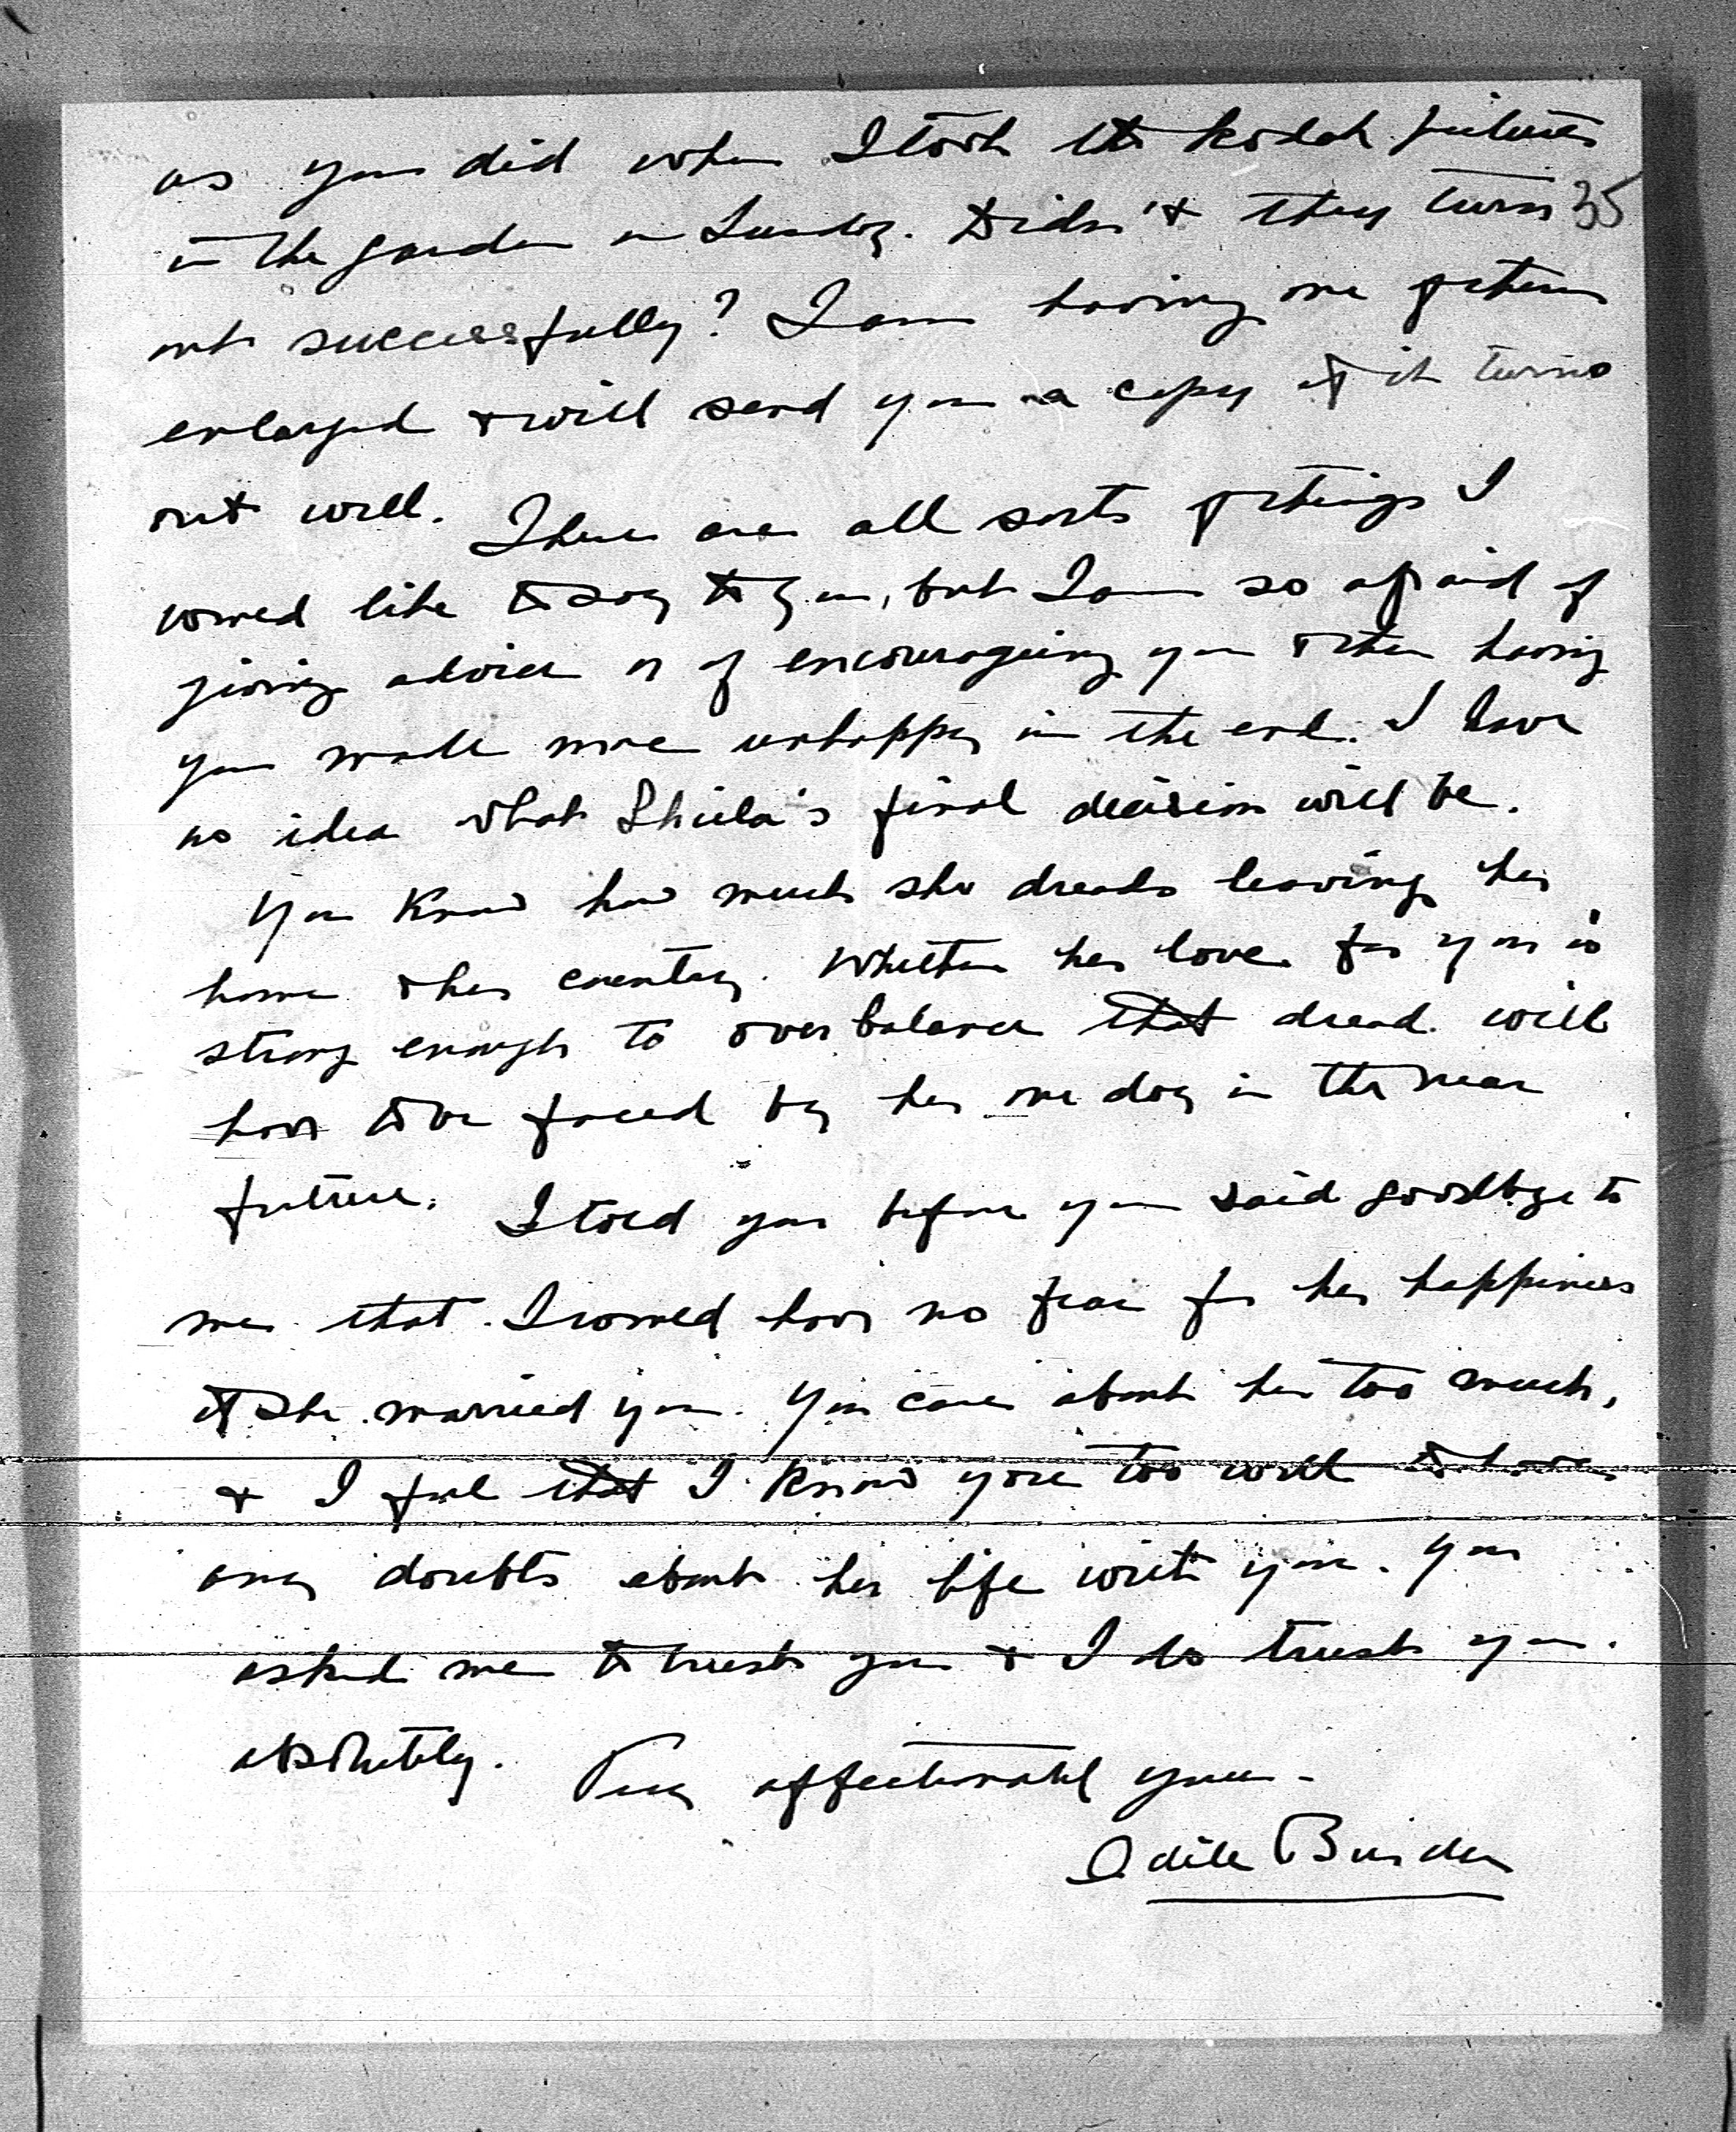 as you did when I took the kodak pictures
in the garden on Sunday. Didn't they turn 35
out successfully? I am having one picture
enlarged & will send you a copy if it turns
out well.
There are all sorts of things I
would like to say to you, but I am so afraid of
giving advice or of encourageing you & then having
you made more unhappy in the end. I have
no idea what Shiela's final decision will be.
You know how much she dreads leaving her
home & her country. Whether her love for you is
strong enough to over balance that dread will
have to be faced by her one day in the near
future.
I told you before you said goodbye to
me that I would have no fear for her happiness
if she married you. You care about her too much,
& I feel that I know you too well to have
any doubts about her life with you. You
asked me to trust you & I do trust you
absolutely.
Very affectionately yours -
Odile Burden